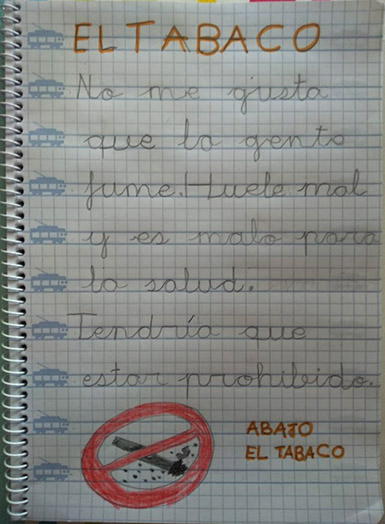 EL TABACO
No me gusta
que la gente
fume. Huele mal
y es malo para
la salud.
Tendría que
estar prohibido.
ABAJO
EL TABACO